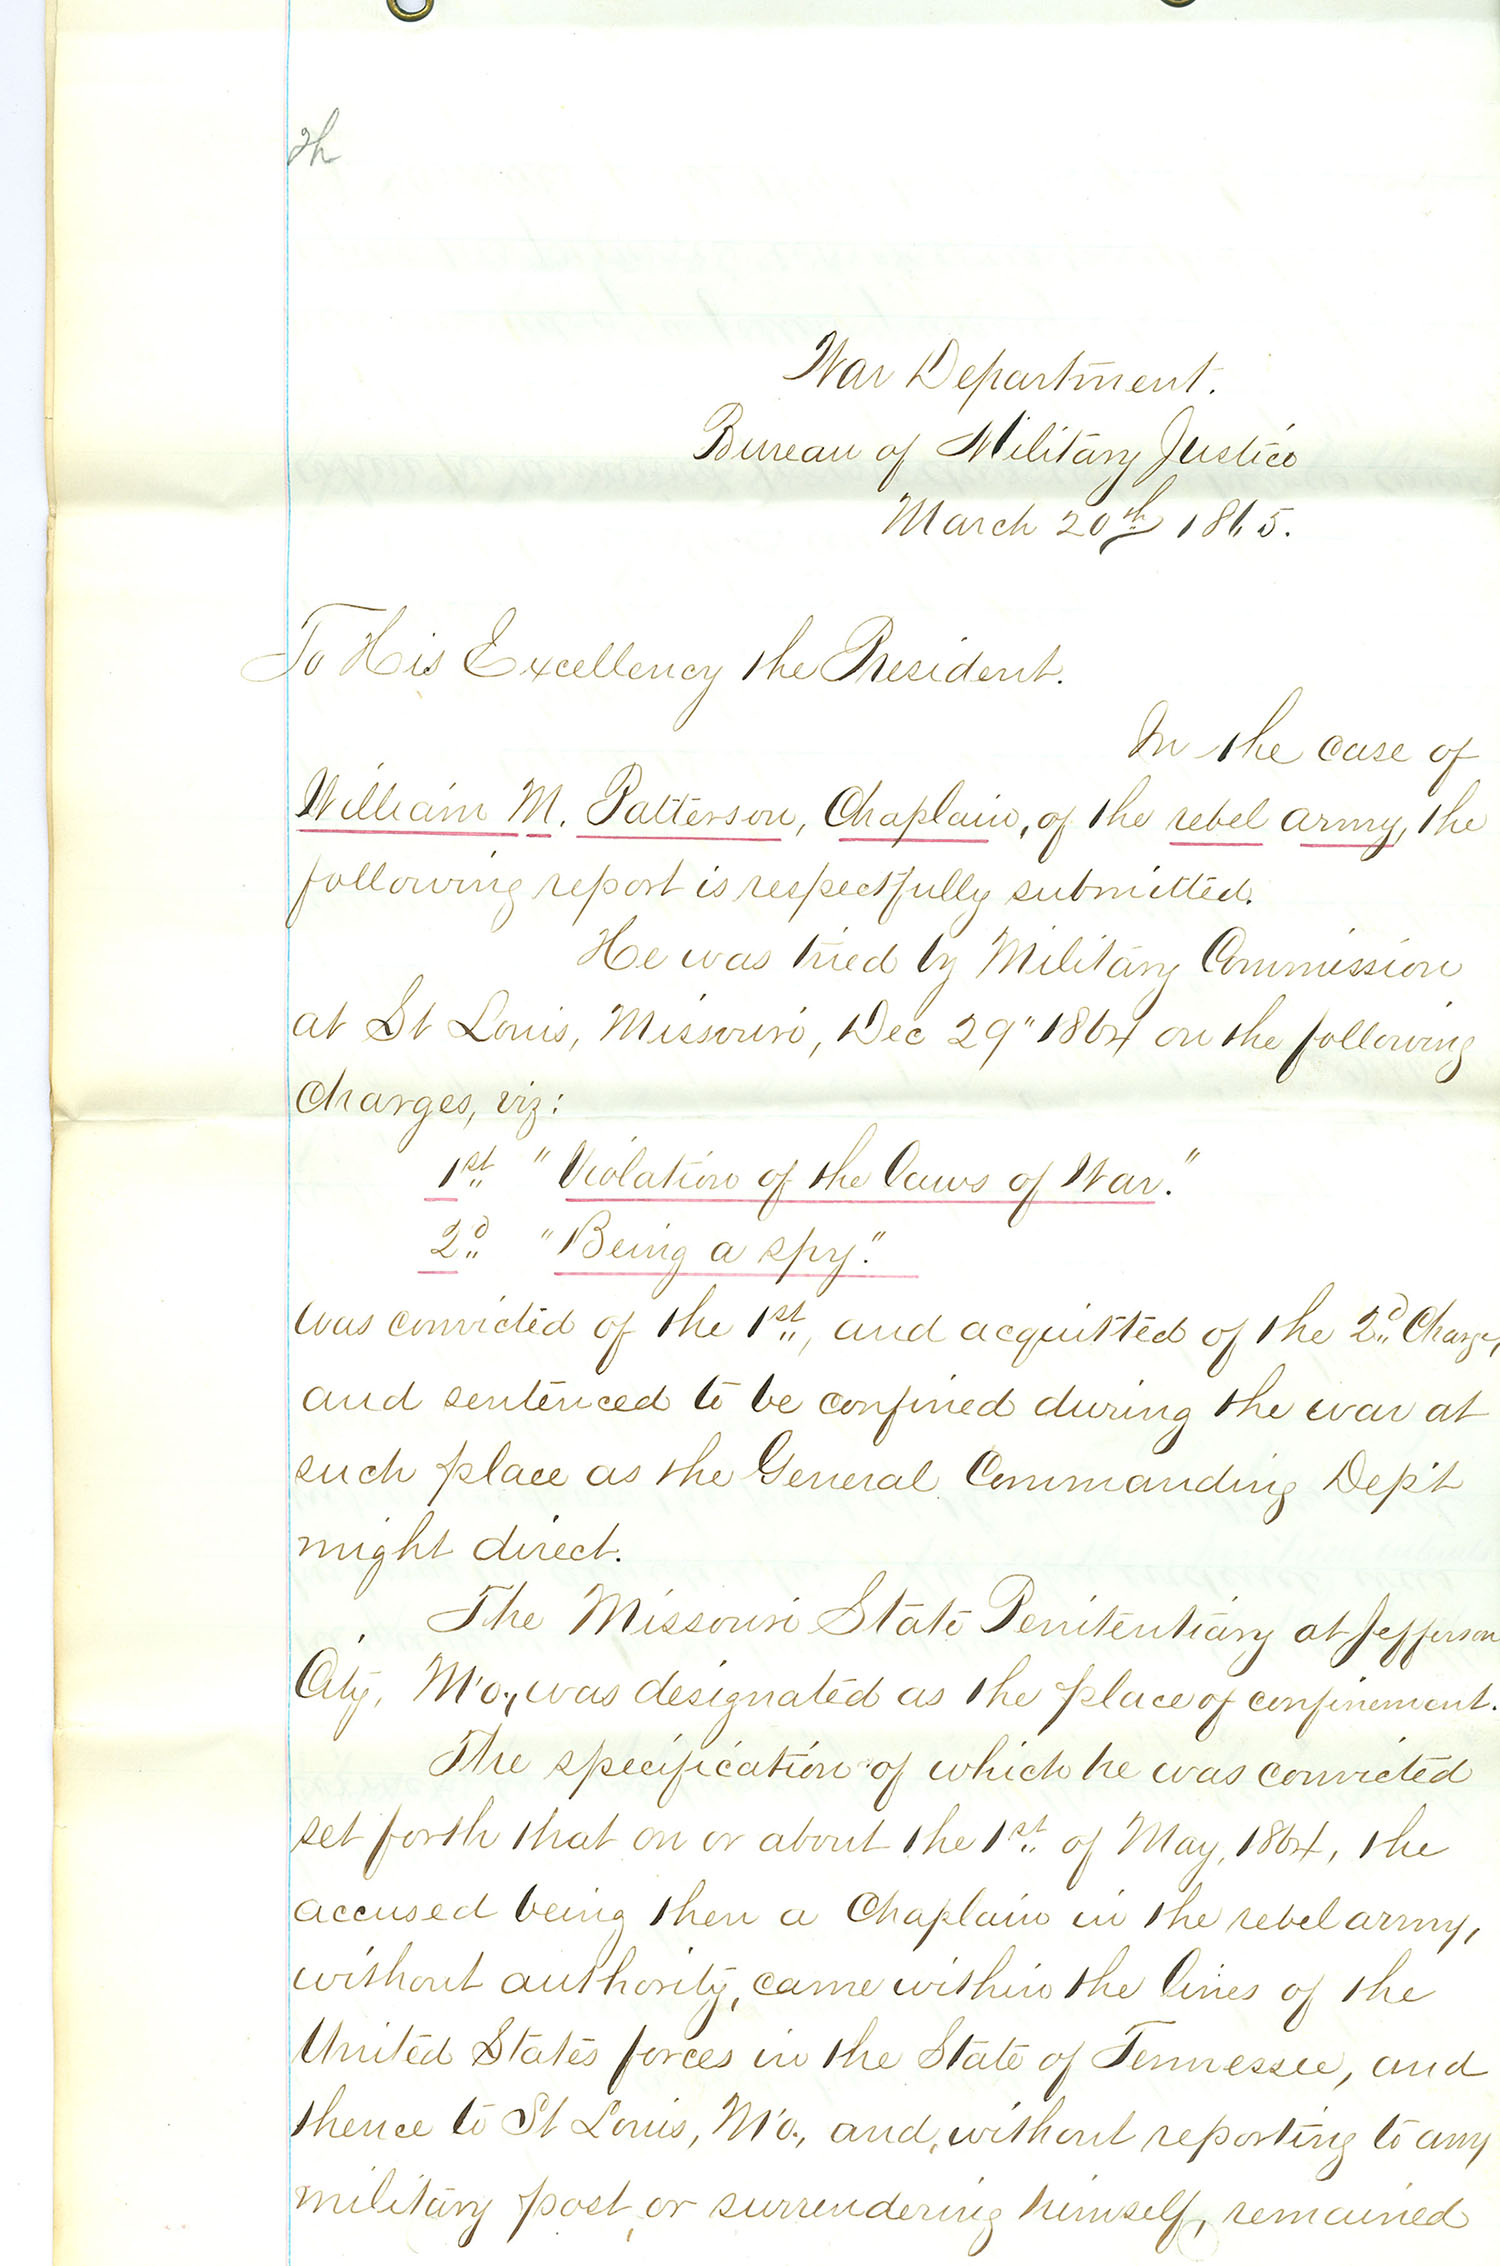 War Department.
Bureau of Military Justice
March 20th 1865.
To His Excellency the President.
In the case of
William M. Patterson, Chaplain, of the rebel army, the
following report is respectfully submitted.
He was tried by Military Commission
at St Louis, Missouri, Dec 29" 1864 on the following
Charges, viz:
1st "Violation of the laws of War."
2d "Being a spy."
was convicted of the 1st, and acquitted of the 2d Charge,
and sentenced to be confined during the war at
such place as the General Commanding Dep't
might direct.
The Missouri State Penitentiary at Jefferson
City, Mo., was designated as the place of confinement.
The specification of which he was convicted
set forth that on or about the 1st of May, 1864, the
accused being then a Chaplain in the rebel army,
without authority, came within the lines of the
United States forces in the State of Tennessee, and
thence to St Louis, Mo., and, without reporting to any
military post, or surrendering himself, remained